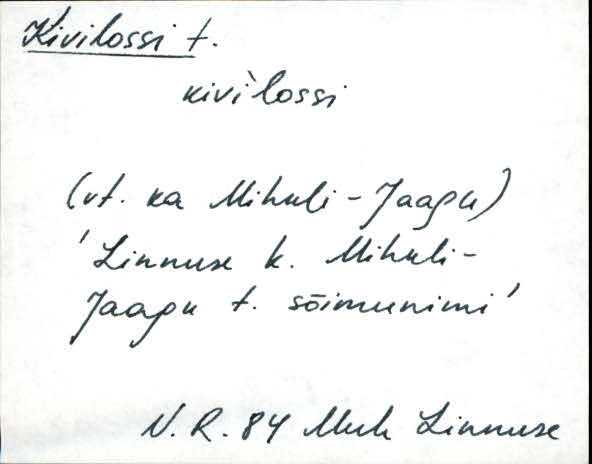 Kivilossi t.
kivi`lossi
(vt. ka Mihuli-Jaagu)
'Linnuse k. Mihuli-
Jaagu t. sõimunimi'
N. R. 84 Muh Linnuse